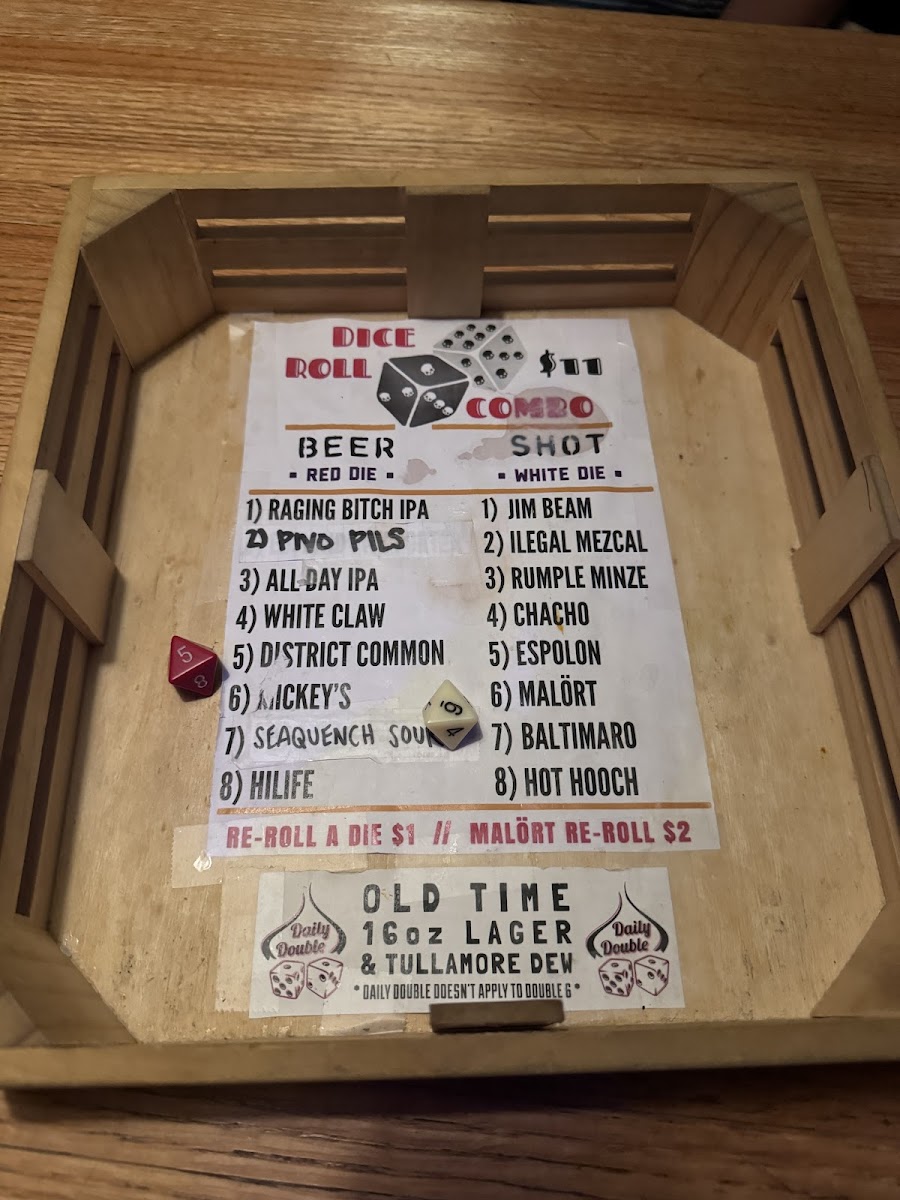 DICE
ROLL
$11
COMBO
BEER
▪ RED DIE ▪
1) RAGING BITCH IPA
2) PIVO PILS
3) ALL DAY IPA
4) WHITE CLAW
5) DISTRICT COMMON
6) MICKEY'S
7) SEAQUENCH SOUR
8) HILIFE
SHOT
▪ WHITE DIE ▪
1) JIM BEAM
2) ILEGAL MEZCAL
3) RUMPLE MINZE
4) CHACHO
5) ESPOLON
6) MALÖRT
7) BALTIMARO
8) HOT HOOCH
5
8
6
4
RE-ROLL A DIE $1 // MALÖRT RE-ROLL $2
Daily
Double
OLD TIME
16oz LAGER
& TULLAMORE DEW
* DAILY DOUBLE DOESN'T APPLY TO DOUBLE 6 *
Daily
Double